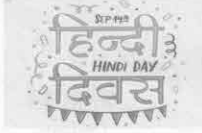 SEP 14th
हिन्दी
HINDI DAY
दिवस